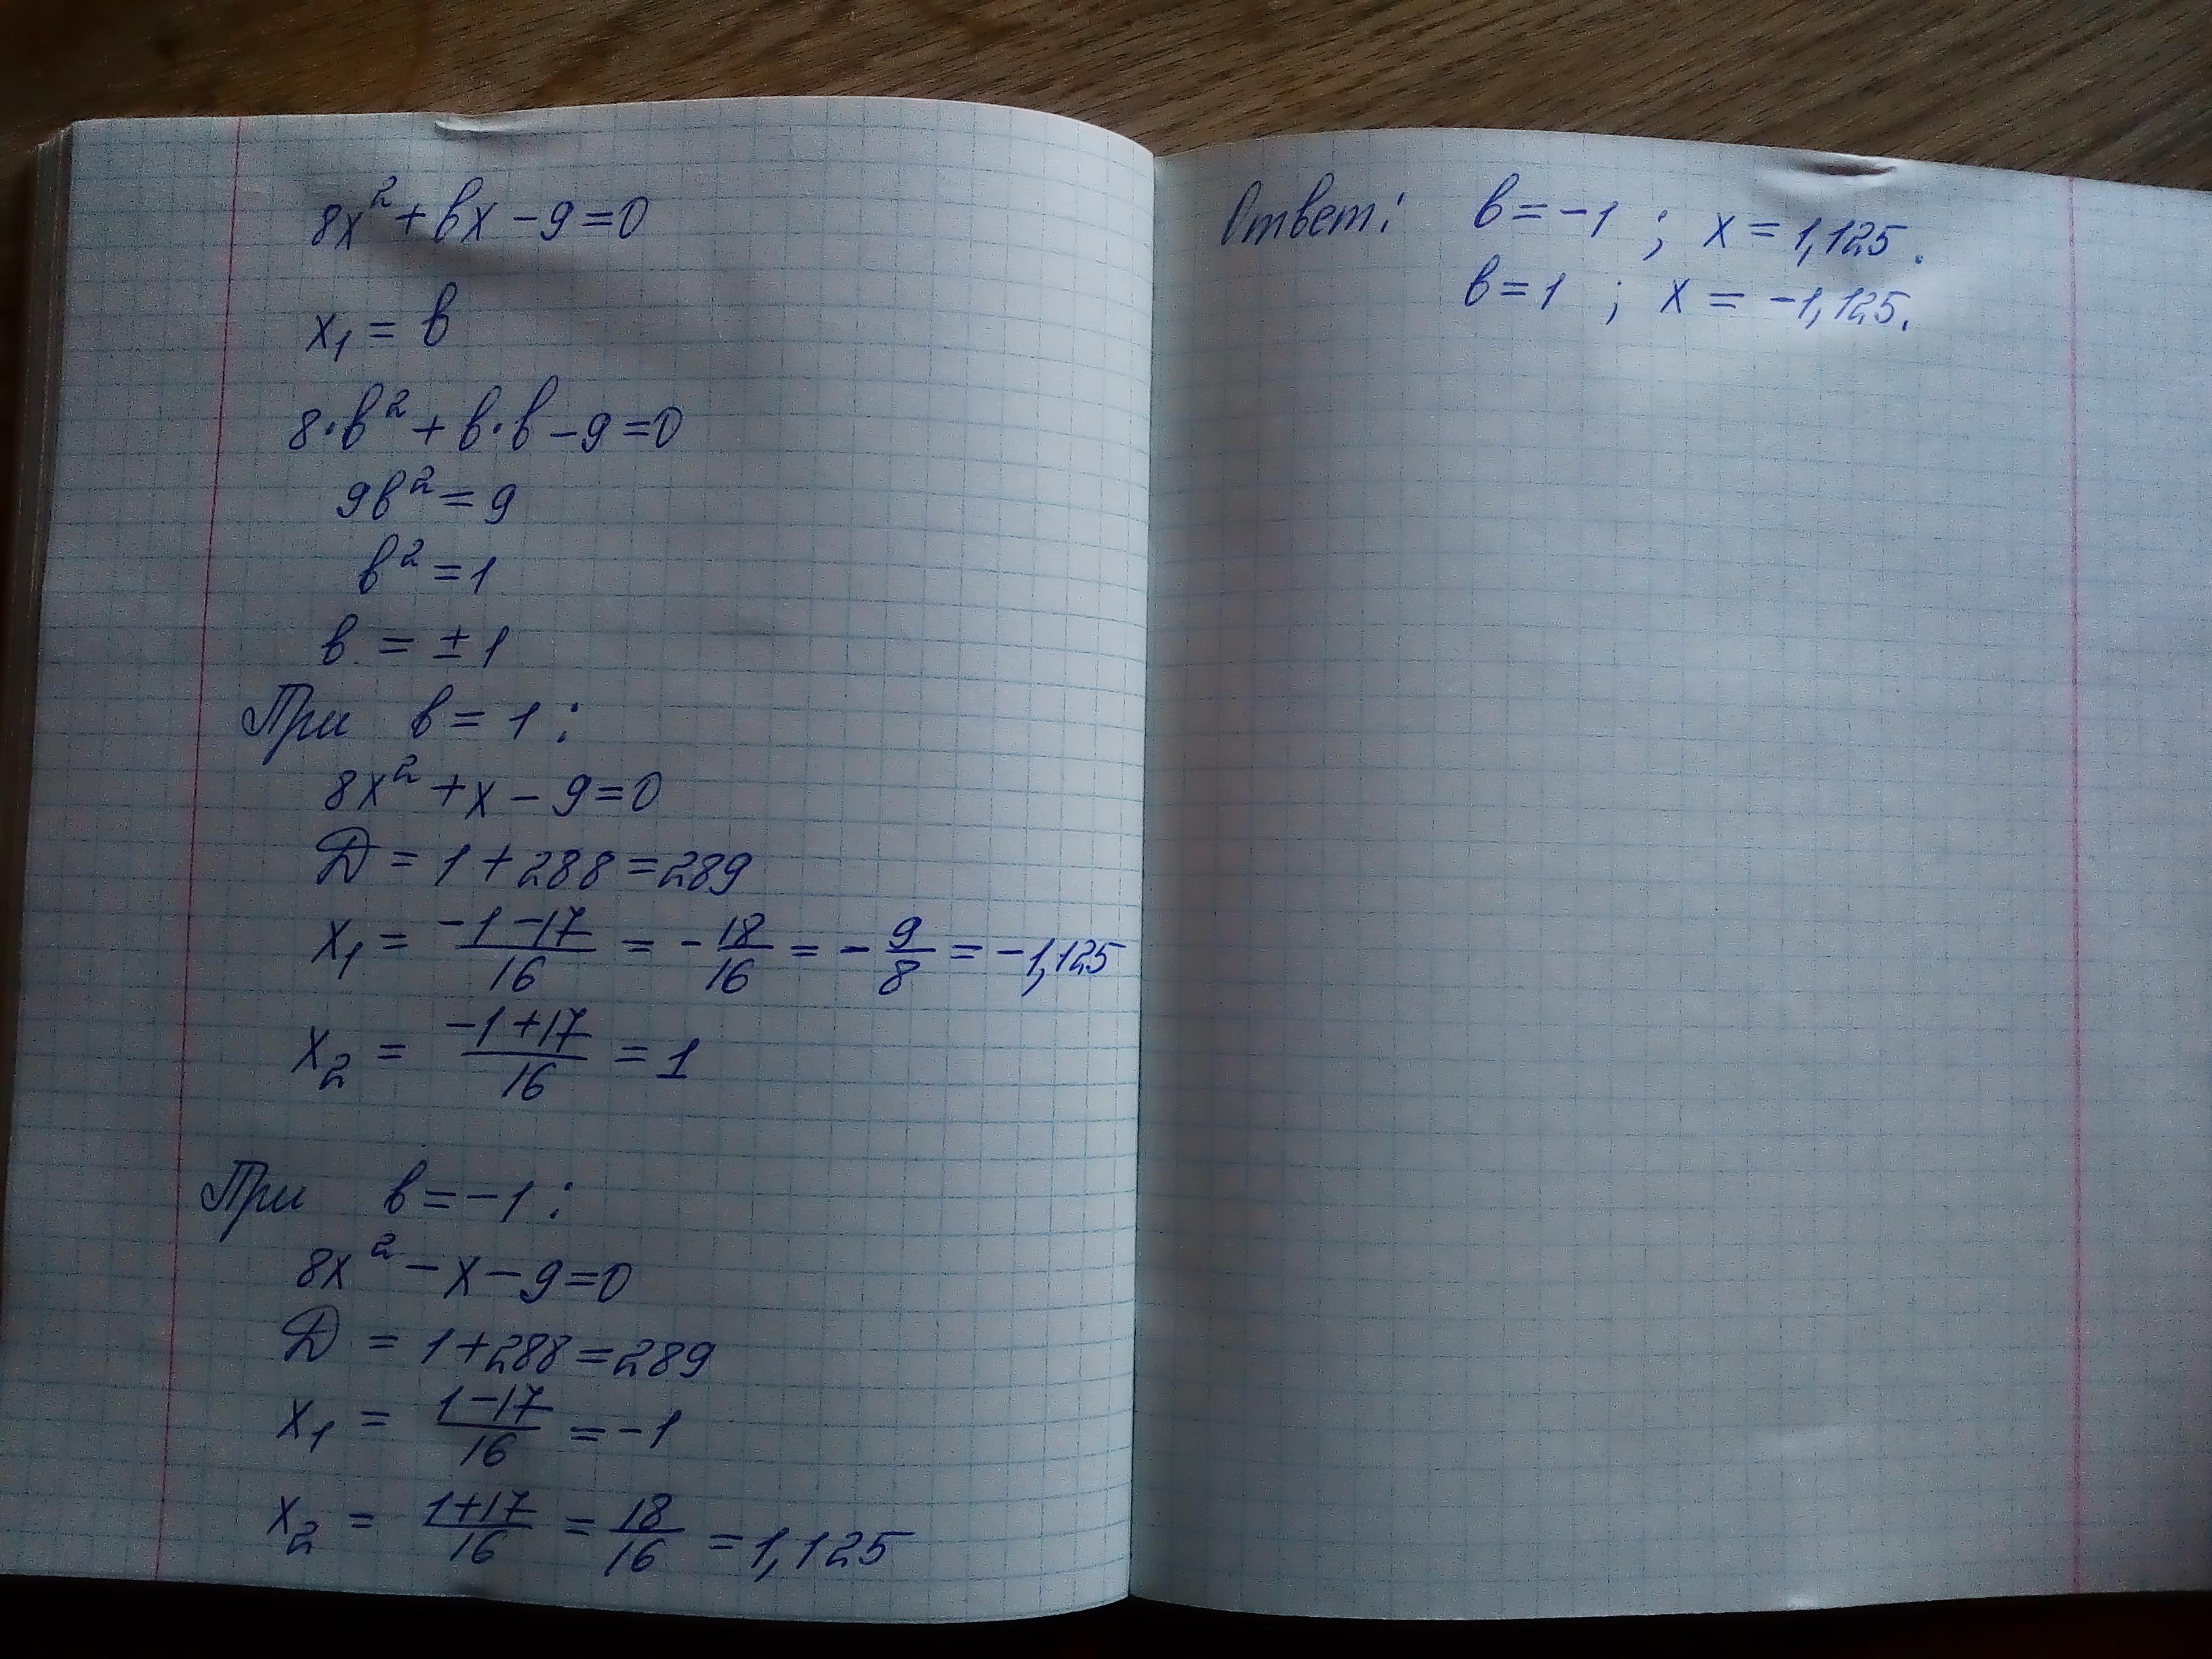 8x² + bx - 9 = 0
x₁ = b
8·b² + b·b - 9 = 0
9b² = 9
b² = 1
b = ± 1
При b = 1:
8x² + x - 9 = 0
D = 1 + 288 = 289
x₁ = (-1 - 17)/16 = - 18/16 = - 9/8 = -1,125
x₂ = (-1 + 17)/16 = 1
При b = -1:
8x² - x - 9 = 0
D = 1 + 288 = 289
x₁ = (1 - 17)/16 = -1
x₂ = (1 + 17)/16 = 18/16 = 1,125
Ответ: b = -1 ; x = 1,125.
b = 1 ; x = -1,125.